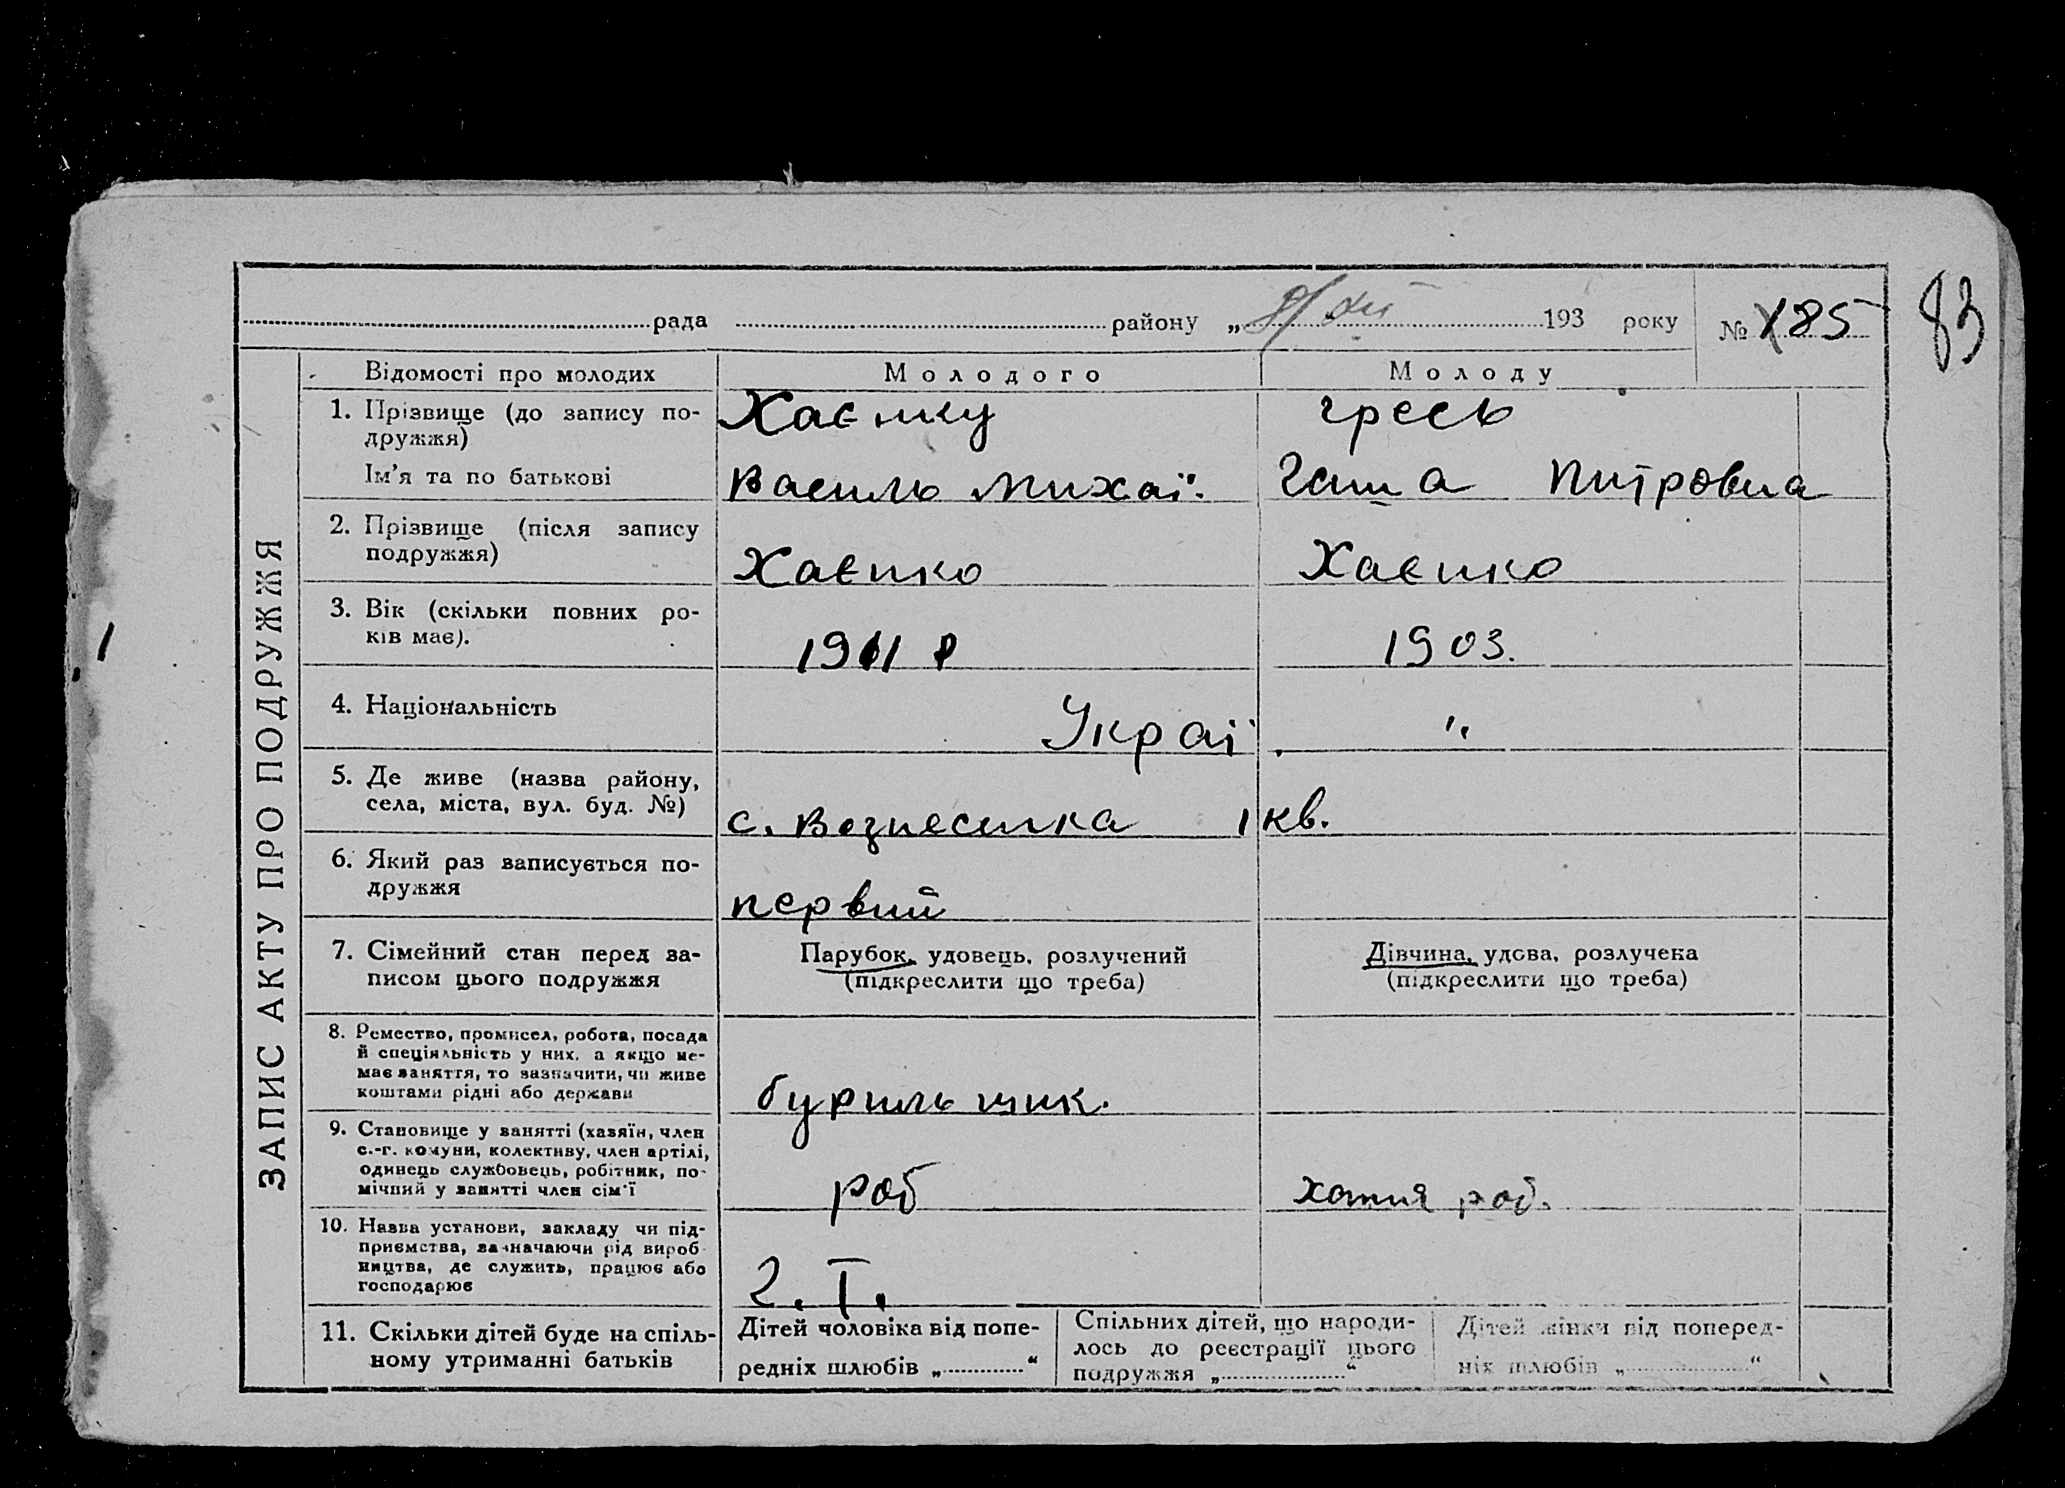 рада району „ 8/XII 193 року № 185
83
ЗАПИС АКТУ ПРО ПОДРУЖЖЯ
Відомості про молодих Молодого Молоду
1. Прізвище (до запису по-
дружжя)
Хаєнку гресь
Ім'я та по батькові Василь Михаї. Ганна Питровна
2. Прізвище (після запису
подружжя)
Хаєнко Хаєнко
3. Вік (скільки повних ро-
ків має).
1911 р 1903.
4. Національність Украї. "
5. Де живе (назва району,
села, міста, вул. буд. №)
с. Вознесенка 1 кв.
6. Який раз записується по-
дружжя
первий
7. Сімейний стан перед за-
писом цього подружжя
Парубок, удовець, розлучений
(підкреслити що треба)
Дівчина, удова, розлучена
(підкреслити що треба)
8. Ремество, промисел, робота, посада
й спеціяльність у них, а якщо не-
має заняття, то зазначити, чи живе
коштами рідні або держави
бурильщик.
9. Становище у занятті (хазяїн, член
с.-г. комуни, колективу, член артілі,
одинець службовець, робітник, по-
мічний у занятті член сім'ї
роб хатня роб.
10. Назва установи, закладу чи під-
приємства, зазначаючи рід вироб-
ництва, де служить, працює або
господарює
Г. Т.
11. Скільки дітей буде на спіль-
ному утриманні батьків
Дітей чоловіка від попе-
редніх шлюбів „ “
Спільних дітей, що народи-
лось до реєстрації цього
подружжя „ “
Дітей жінки від поперед-
ніх шлюбів „ “